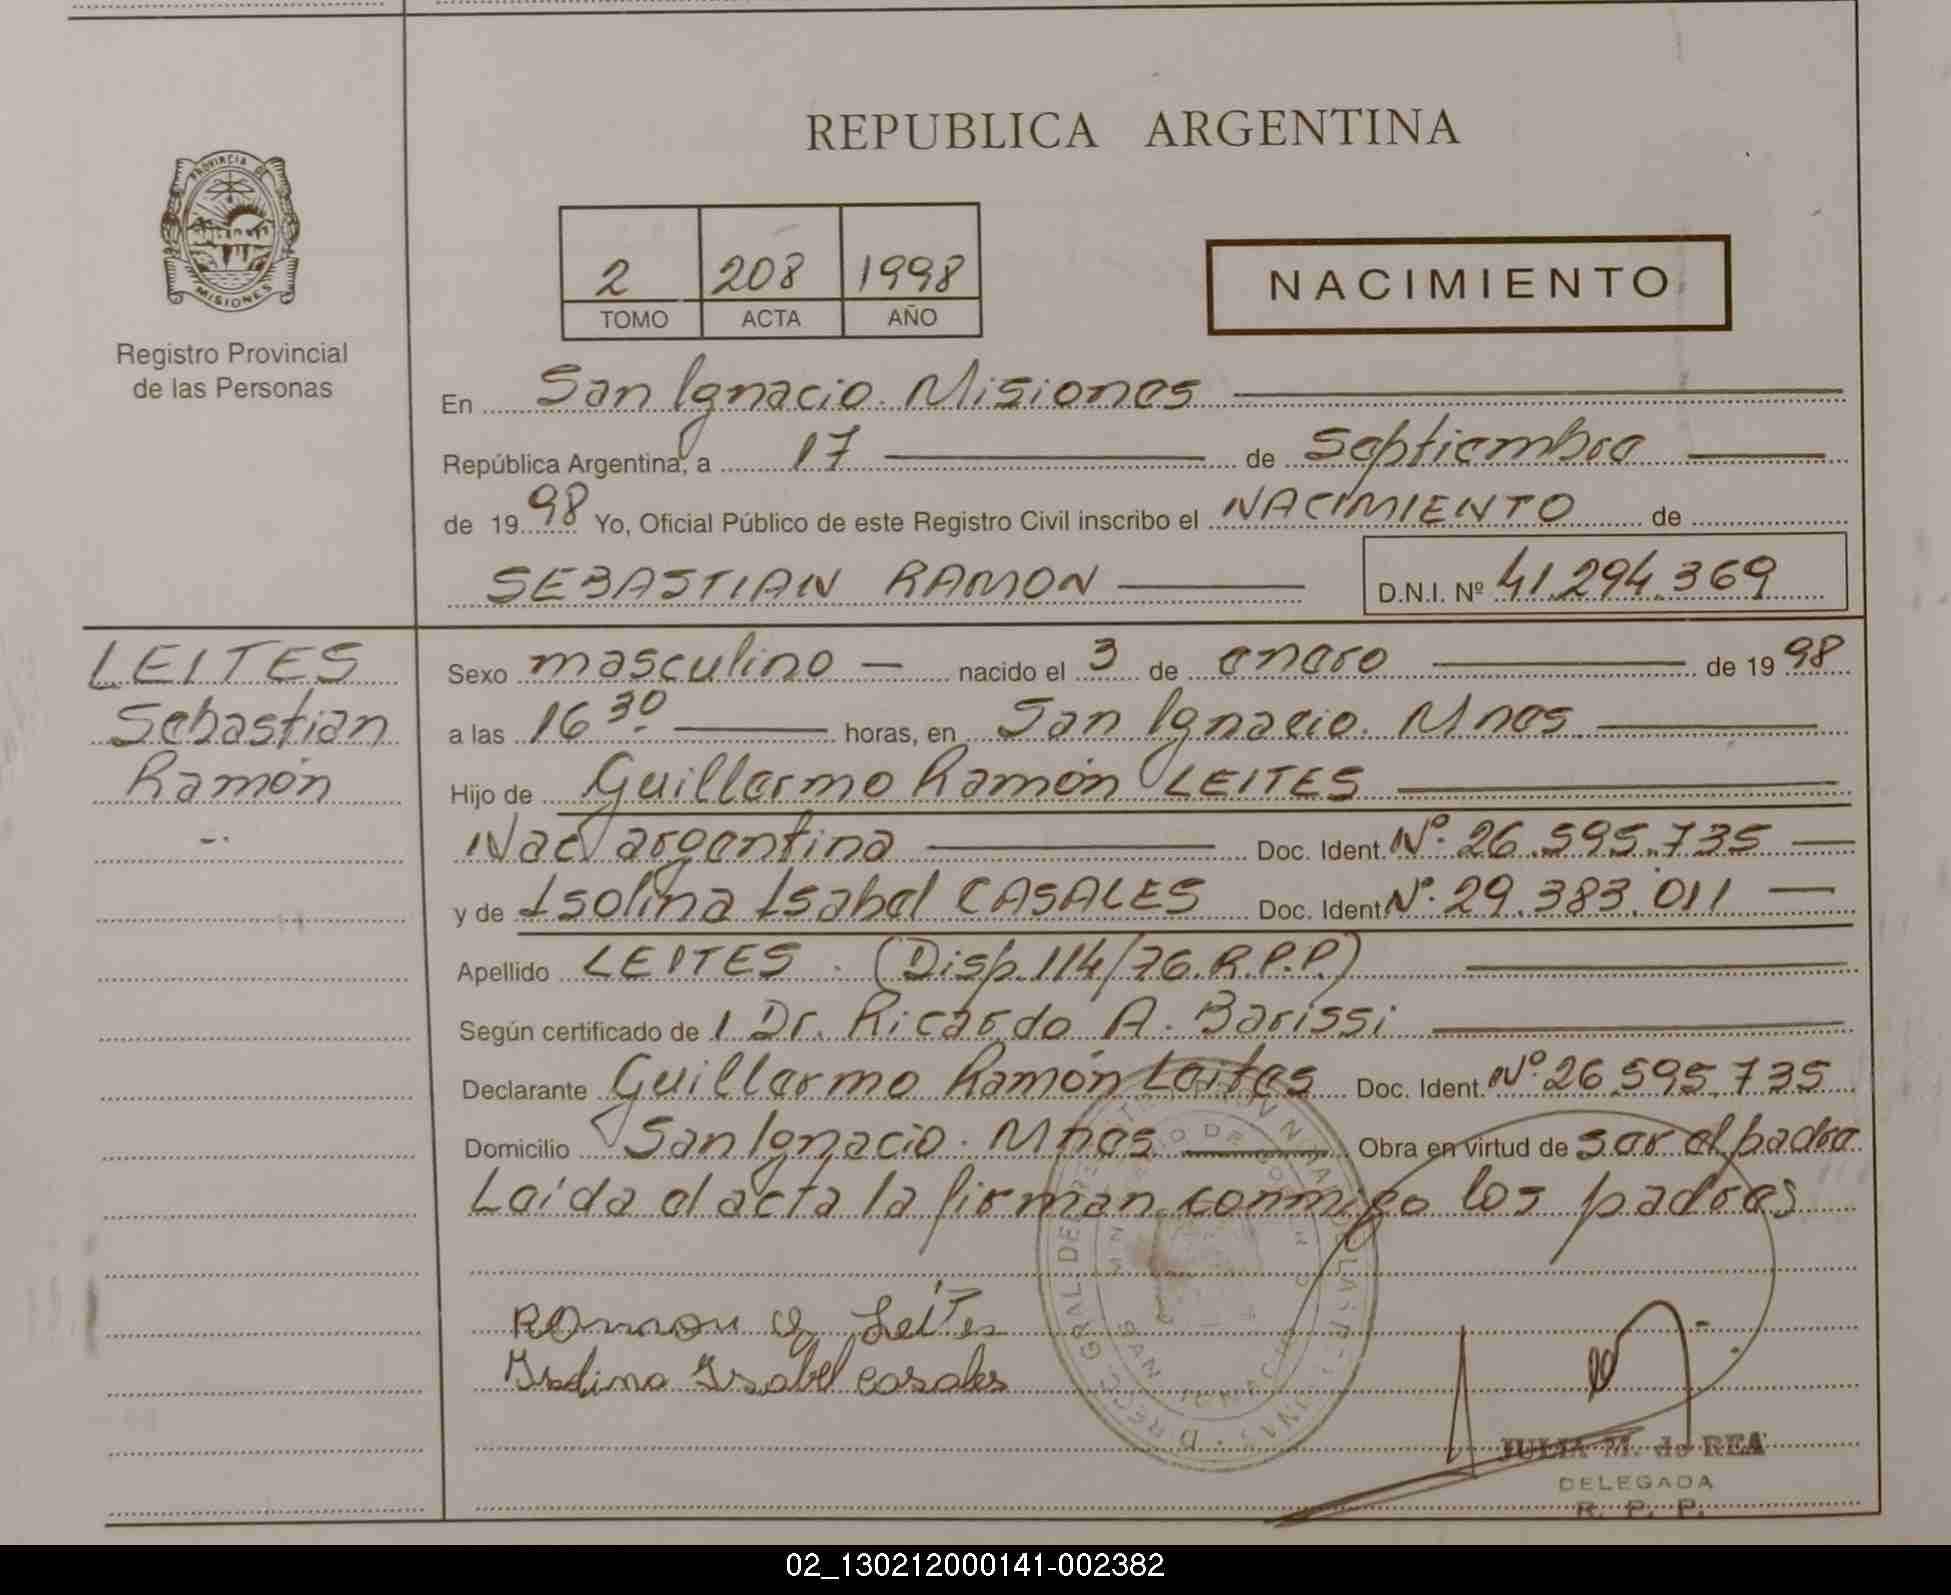 REPUBLICA ARGENTINA
PROVINCIA DE
MISIONES
Registro Provincial
de las Personas
2 208 1998
TOMO ACTA AÑO
NACIMIENTO
En San Ignacio. Misiones
República Argentina, a 17 de Septiembre
de 1998 Yo, Oficial Público de este Registro Civil inscribo el NACIMIENTO de
SEBASTIAN RAMON D.N.I. Nº 41.294.369
LEITES
Sebastian
Ramón
Sexo masculino nacido el 3 de enero de 1998
a las 16 30 horas, en San Ignacio. Mnes
Hijo de Guillermo Ramón LEITES
Nac argentina Doc. Ident. Nº 26.595.735
y de Isolina Isabel CASALES Doc. Ident. Nº 29.383.011
Apellido LEITES. (Disp. 114/76. R.P.P.)
Según certificado de 1 Dr. Ricardo A. Barissi
Declarante Guillermo Ramón Leites Doc. Ident. Nº 26.595.735
Domicilio San Ignacio. Mnes Obra en virtud de ser el padre
Leída el acta la firman conmigo los padres
Ramon G Leites
Isolina Isabel Casales
SAN IGNACIO
JULIA M. de REA
DELEGADA
R. P. P.
02_130212000141-002382